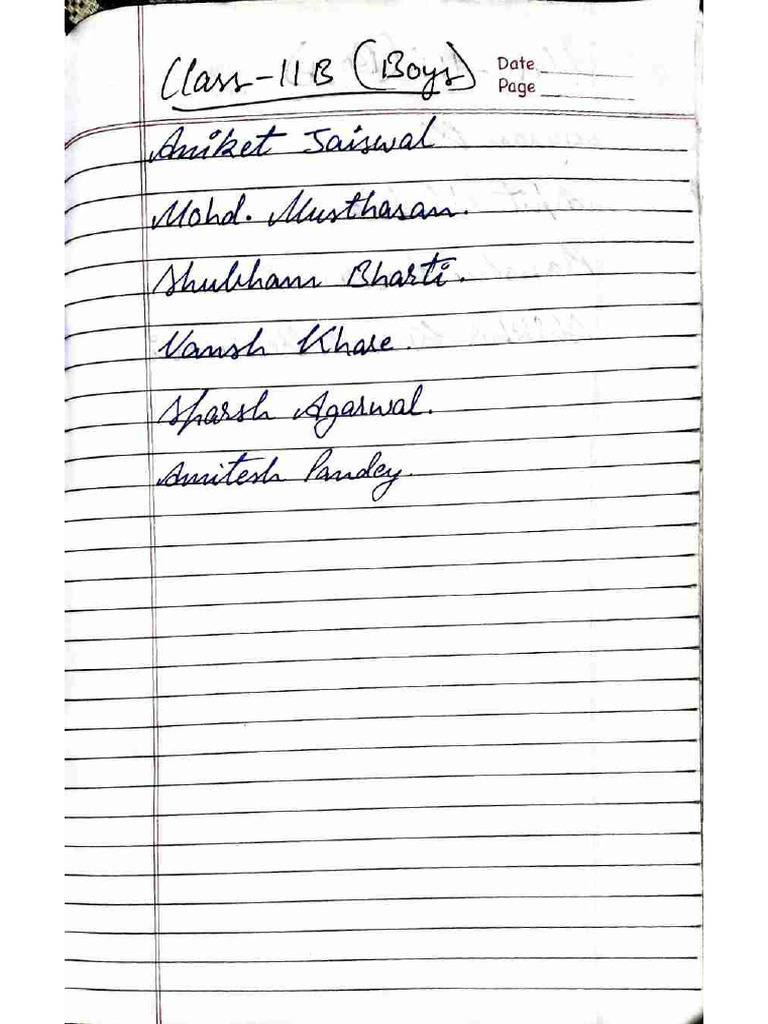 Class-11B (Boys)
Date
Page
Aniket Jaiswal
Mohd. Musthasan.
Shubham Bharti.
Vansh Khare.
Sparsh Agarwal.
Amitesh Pandey.